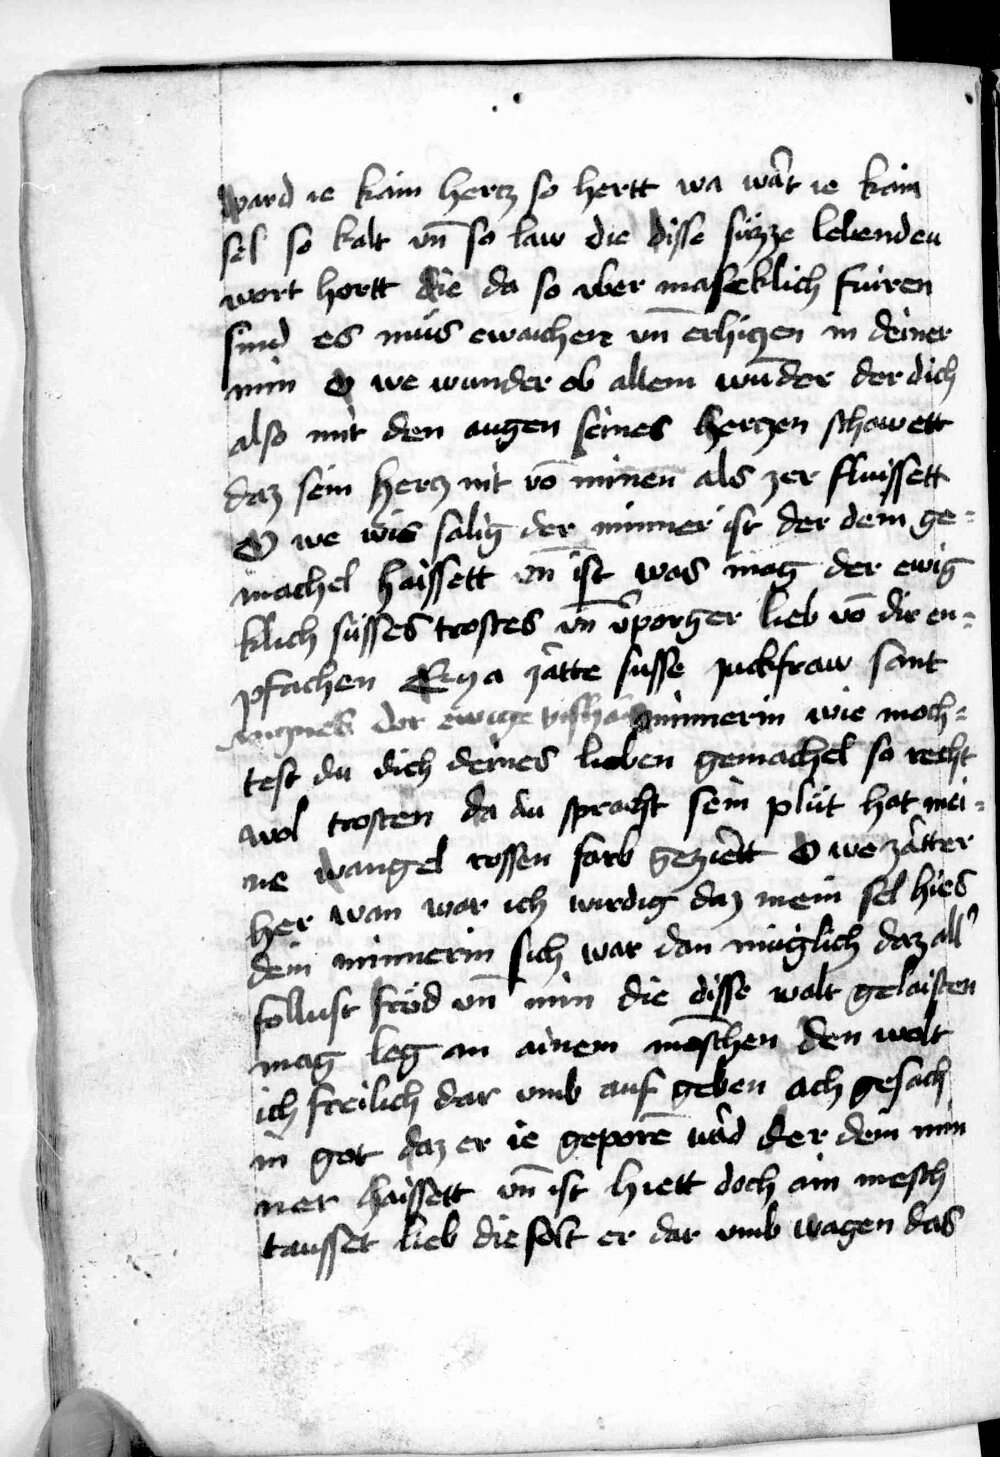 ward ie kain hercz so hertt wa wart ie kain
sel so kalt vn̄ so law die disse süzze lebenden
wort hortt die da so vber maseklich fuiren
sind es müs ewaichen vn̄ erhiczen in deiner
min O we wunder ob allem wūder der dich
also mit den augen seines herczen schowett
daz sein hercz nit vō minen als zer fluissett
O we wie salig der minner ist der dein ge=
machel haissett vn̄ ist was mag der ewig
klich süsses trostes vn̄ vporger lieb vō dir en=
pfachen Eya zatte susse juckfraw sant
Angnes der ewige minnerin wie moch=
test du dich deines lieben gemachel so recht
wol trosten da du spracht sein plüt hat mei=
ne wangel rossen farb geziertt O we zatter
her wan war ich wirdig daz mein sel hies
dein minnerin sich war dan müglich daz all
follust fröd vn̄ min die disse walt gelaisten
mag leg an ainem mēschen den wolt
ich freilich dar vmb auf geben ach gesach
in got daz er ie geporē wad der dein min
ner haissett vn̄ ist hiett doch ain mesch
tausset lieb die solt er dar vmb wagen das